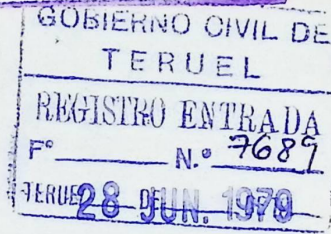 GOBIERNO CIVIL DE
TERUEL
REGISTRO ENTRADA
Fº N.º 7689
TERUEL 28 DE JUN. 1979